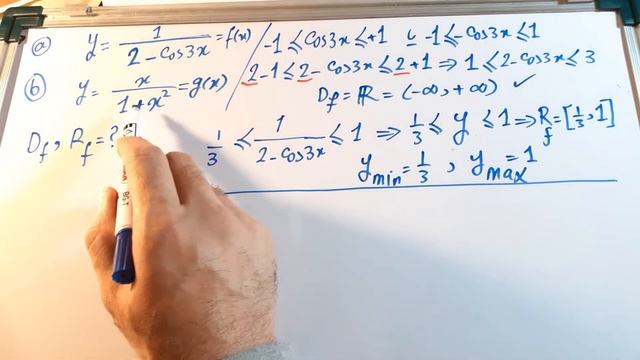 a) y = 1/(2-cos3x) = f(x)
b) y = x/(1+x²) = g(x)
D_f, R_f = ?
-1 ≤ cos3x ≤ +1 ن -1 ≤ -cos3x ≤ 1
2-1 ≤ 2-cos3x ≤ 2+1 ⇒ 1 ≤ 2-cos3x ≤ 3
D_f = ℝ = (-∞, +∞) ✓
1/3 ≤ 1/(2-cos3x) ≤ 1 ⇒ 1/3 ≤ y ≤ 1 ⇒ R_f = [1/3, 1]
y_min = 1/3 , y_max = 1